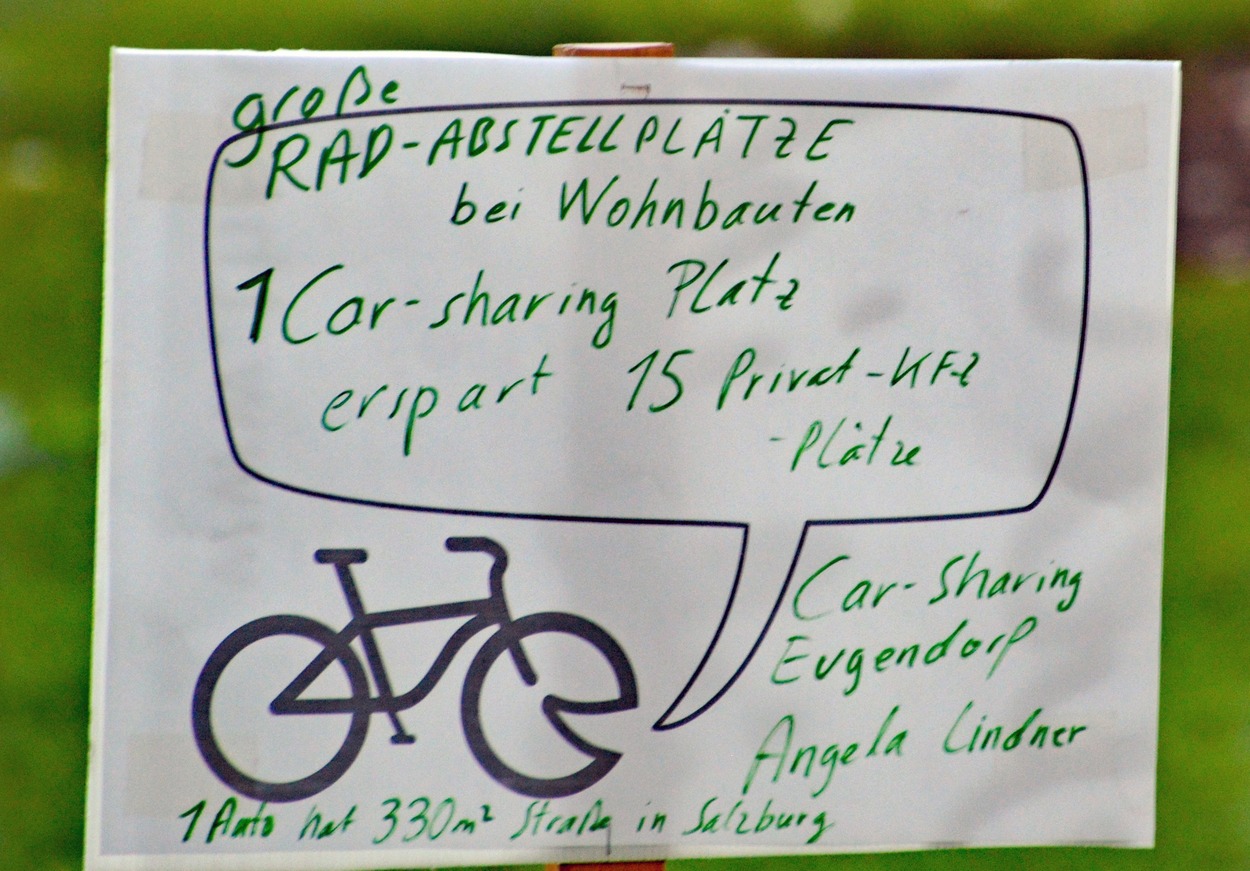 große
RAD-ABSTELLPLÄTZE
bei Wohnbauten
1 Car-sharing Platz
erspart 15 Privat-KFZ
-Plätze
Car-Sharing
Eugendorf
Angela Lindner
1 Auto hat 330m² Straße in Salzburg